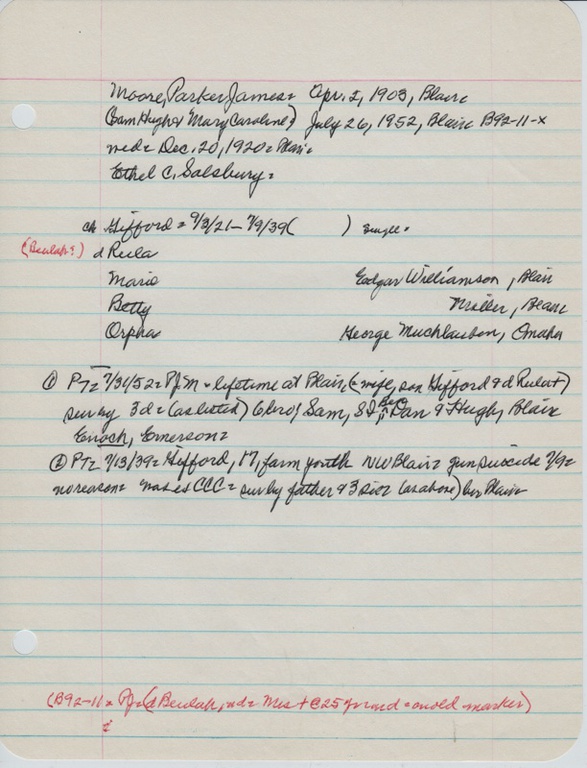 Moore, Parker James = Apr. 2, 1903, Blair
(Sam Hugh & Mary Caroline) July 26, 1952, Blair B92-11-X
md = Dec. 20, 1920 = Blair =
Ethel C. Salsbury =
ch Gifford = 9/3/21 - 7/9/39 ( ) single =
(Beulah?) d Rula
Marie Edgar Williamson, Blair
Betty Miller, Blair
Orpha George Muchlauben, Omaha
① PT = 7/31/52 = PJM = lifetime at Blair (= wife, son Gifford & d Rula+)
sur by 3 d = (as listed) 6 bro; Sam, Dan & Hugh, Blair
Enoch, Emerson =
② PT = 7/13/39 = Gifford, 17, farm youth NW Blair = gun suicide 7/9 =
no reason = CCC = sur by father & 3 sis = (as above) bur Blair =
(B92-11 = PJ = (d Beulah, = Mrs + @ 25 = on old marker)